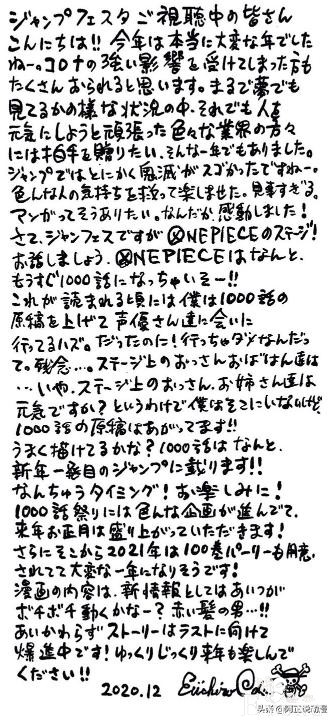 ジャンプフェスタご視聴中の皆さん
こんにちは!! 今年は本当に大変な年でした
ねー。コロナの強い影響を受けてしまった方も
たくさんおられると思います。まるで夢でも
見てるかの様な状況の中、それでも人を
元気にしようと頑張った色々な業界の方々
には拍手を贈りたい、そんな一年でもありました。
ジャンプではとにかく鬼滅がスゴかったですねー。
色んな人の気持ちを救って楽しませた。見事すぎる。
マンガってそうありたい。なんだか感動しました!
さて、ジャンフェスですがONEPIECEのステージ!
お話しましょう。ONEPIECEはなんと、
もうすぐ1000話になっちゃいそー!!
これが読まれる頃には僕は1000話の
原稿を上げて声優さん達に会いに
行ってるハズ。だったのに!行っちゃダメなんだっ
て。残念…。ステージ上のおっさんおばはん達は
…いや、ステージ上のおっさん、お姉さん達は
元気ですか?というわけで僕はそこにいないけど、
1000話の原稿はあがってます!!
うまく描けてるかな?1000話はなんと、
新年一発目のジャンプに載ります!!
なんちゅうタイミング!お楽しみに!
1000話祭りには色んな企画が進んでて、
来年お正月は盛り上がっていただきます!
さらにそこから2021年は100巻パーリーも用意
されてて大変な一年になりそうです!
漫画の内容は、新情報としてはあいつが
ボチボチ動くかなー?赤い髪の男…!!
あいかわらずストーリーはラストに向けて
爆進中です!ゆっくりじっくり来年も楽しんで
ください!!
2020.12 Eiichiro Oda
头条@阿正说动漫